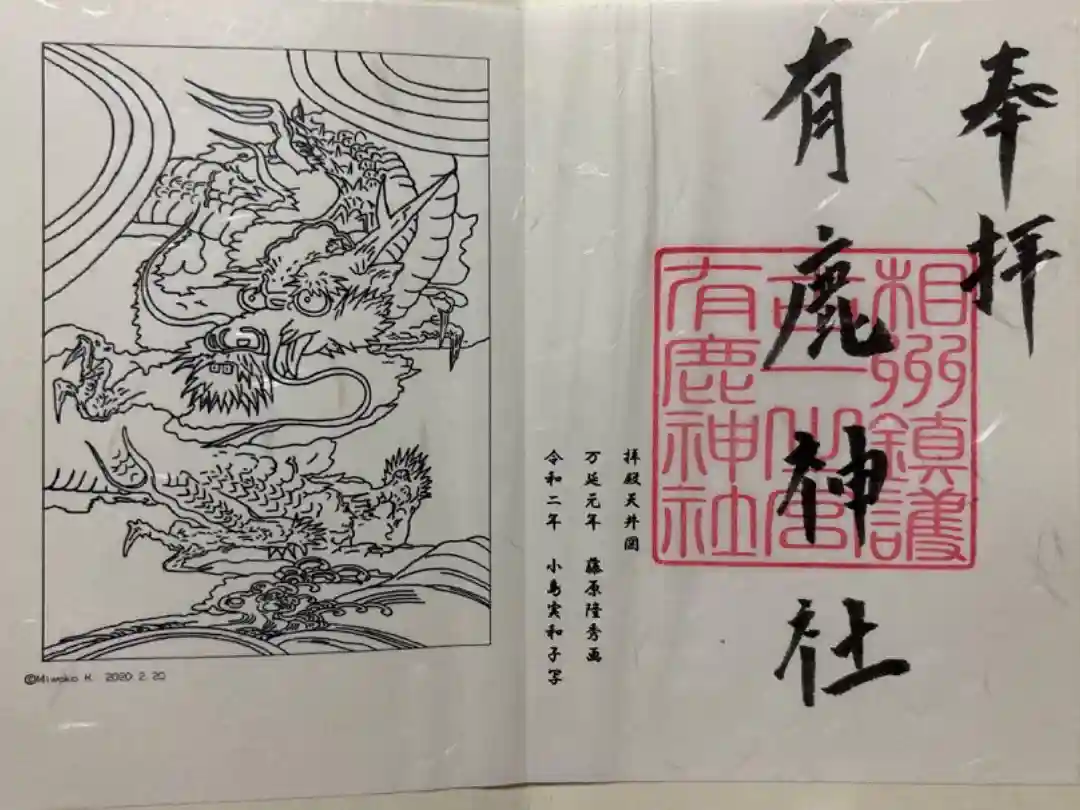 奉拝
有鹿神社
相州鎮護
有鹿神社
拝殿天井図
万延元年 藤原隆秀画
令和二年 小島実和子写
©Miwako K. 2020 2. 20